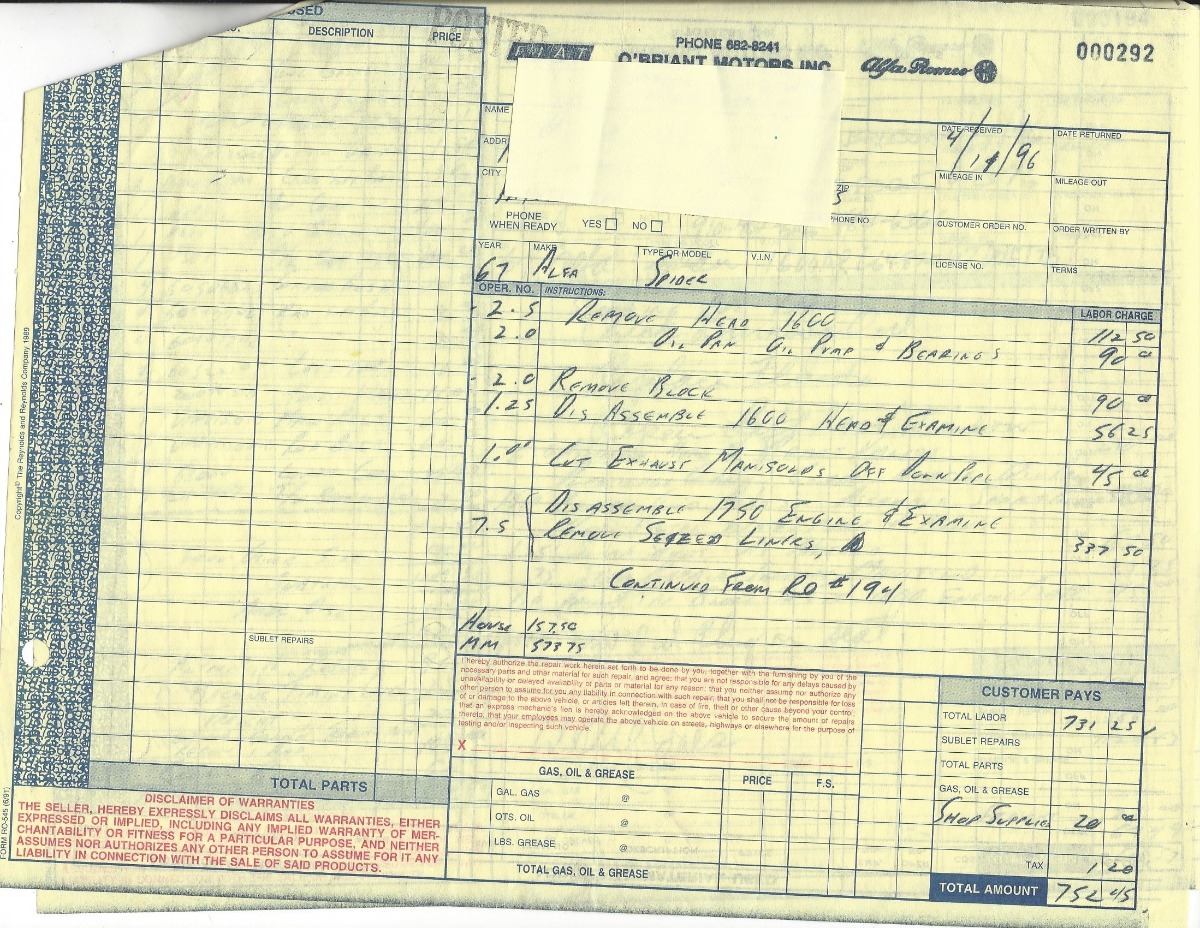 USED
DESCRIPTION
PRICE
POSTED
FIAT
PHONE 682-8241
O'BRIANT MOTORS INC
Alfa Romeo
000292
NAME
ADDR
CITY
ZIP
5
PHONE WHEN READY
YES
NO
PHONE NO.
DATE RECEIVED
DATE RETURNED
MILEAGE IN
MILEAGE OUT
CUSTOMER ORDER NO.
ORDER WRITTEN BY
LICENSE NO.
TERMS
YEAR
67
MAKE
ALFA
TYPE OR MODEL
SPIDER
V.I.N.
OPER. NO.
INSTRUCTIONS:
LABOR CHARGE
- 2.5 REMOVE HEAD 1600 112 50
2.0 OIL PAN OIL PUMP & BEARINGS 90 00
- 2.0 REMOVE BLOCK 90 00
1.25 DIS ASSEMBLE 1600 HEAD & EXAMINE 56 25
1.0 CUT EXHAUST MANIFOLDS OFF DOWNPIPE 45 00
DISASSEMBLE 1750 ENGINE & EXAMINE
7.5 REMOVE SEIZED LINERS, 337 50
CONTINUED FROM RO #194
HOUSE 157.50
MM 573 75
SUBLET REPAIRS
I hereby authorize the repair work herein set forth to be done by you, together with the furnishing by you of the
necessary parts and other material for such repair, and agree: that you are not responsible for any delays caused by
unavailability or delayed availability of parts or material for any reason; that you neither assume nor authorize any
other person to assume for you any liability in connection with such repair; that you shall not be responsible for loss
of or damage to the above vehicle, or articles left therein, in case of fire, theft or other cause beyond your control;
that an express mechanic's lien is hereby acknowledged on the above vehicle to secure the amount of repairs
thereto; that your employees may operate the above vehicle on streets, highways or elsewhere for the purpose of
testing and/or inspecting such vehicle.
X
CUSTOMER PAYS
TOTAL LABOR 731 25
SUBLET REPAIRS
TOTAL PARTS
GAS, OIL & GREASE
SHOP SUPPLIES 20 00
TAX 1 20
TOTAL AMOUNT 752 45
GAS, OIL & GREASE
PRICE
F.S.
GAL. GAS @
QTS. OIL @
LBS. GREASE @
TOTAL GAS, OIL & GREASE
TOTAL PARTS
DISCLAIMER OF WARRANTIES
THE SELLER, HEREBY EXPRESSLY DISCLAIMS ALL WARRANTIES, EITHER
EXPRESSED OR IMPLIED, INCLUDING ANY IMPLIED WARRANTY OF MER-
CHANTABILITY OR FITNESS FOR A PARTICULAR PURPOSE, AND NEITHER
ASSUMES NOR AUTHORIZES ANY OTHER PERSON TO ASSUME FOR IT ANY
LIABILITY IN CONNECTION WITH THE SALE OF SAID PRODUCTS.
FORM RO-545 (6/91)
Copyright© The Reynolds and Reynolds Company 1989